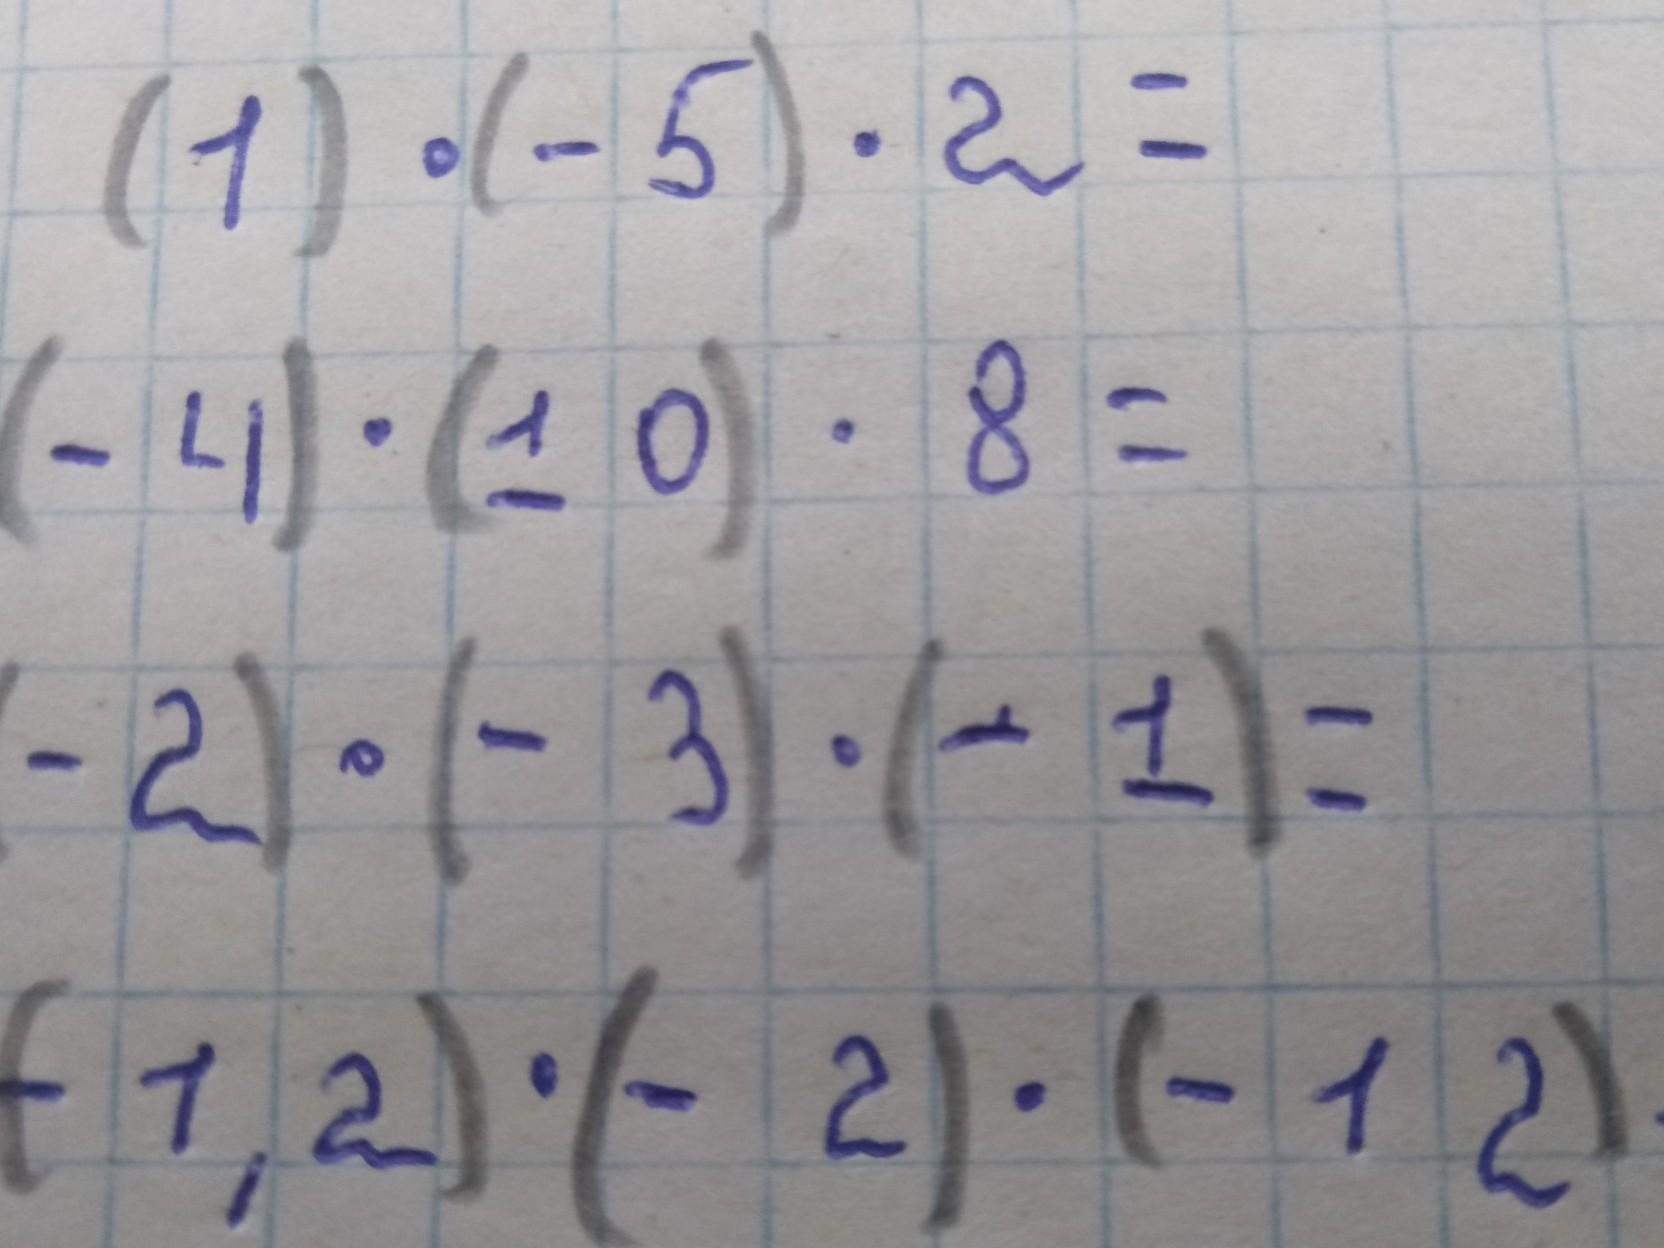 (1) · (- 5) · 2 =
(- 4) · (10) · 8 =
(- 2) · (- 3) · (- 1) =
(- 1,2) · (- 2) · (- 12)